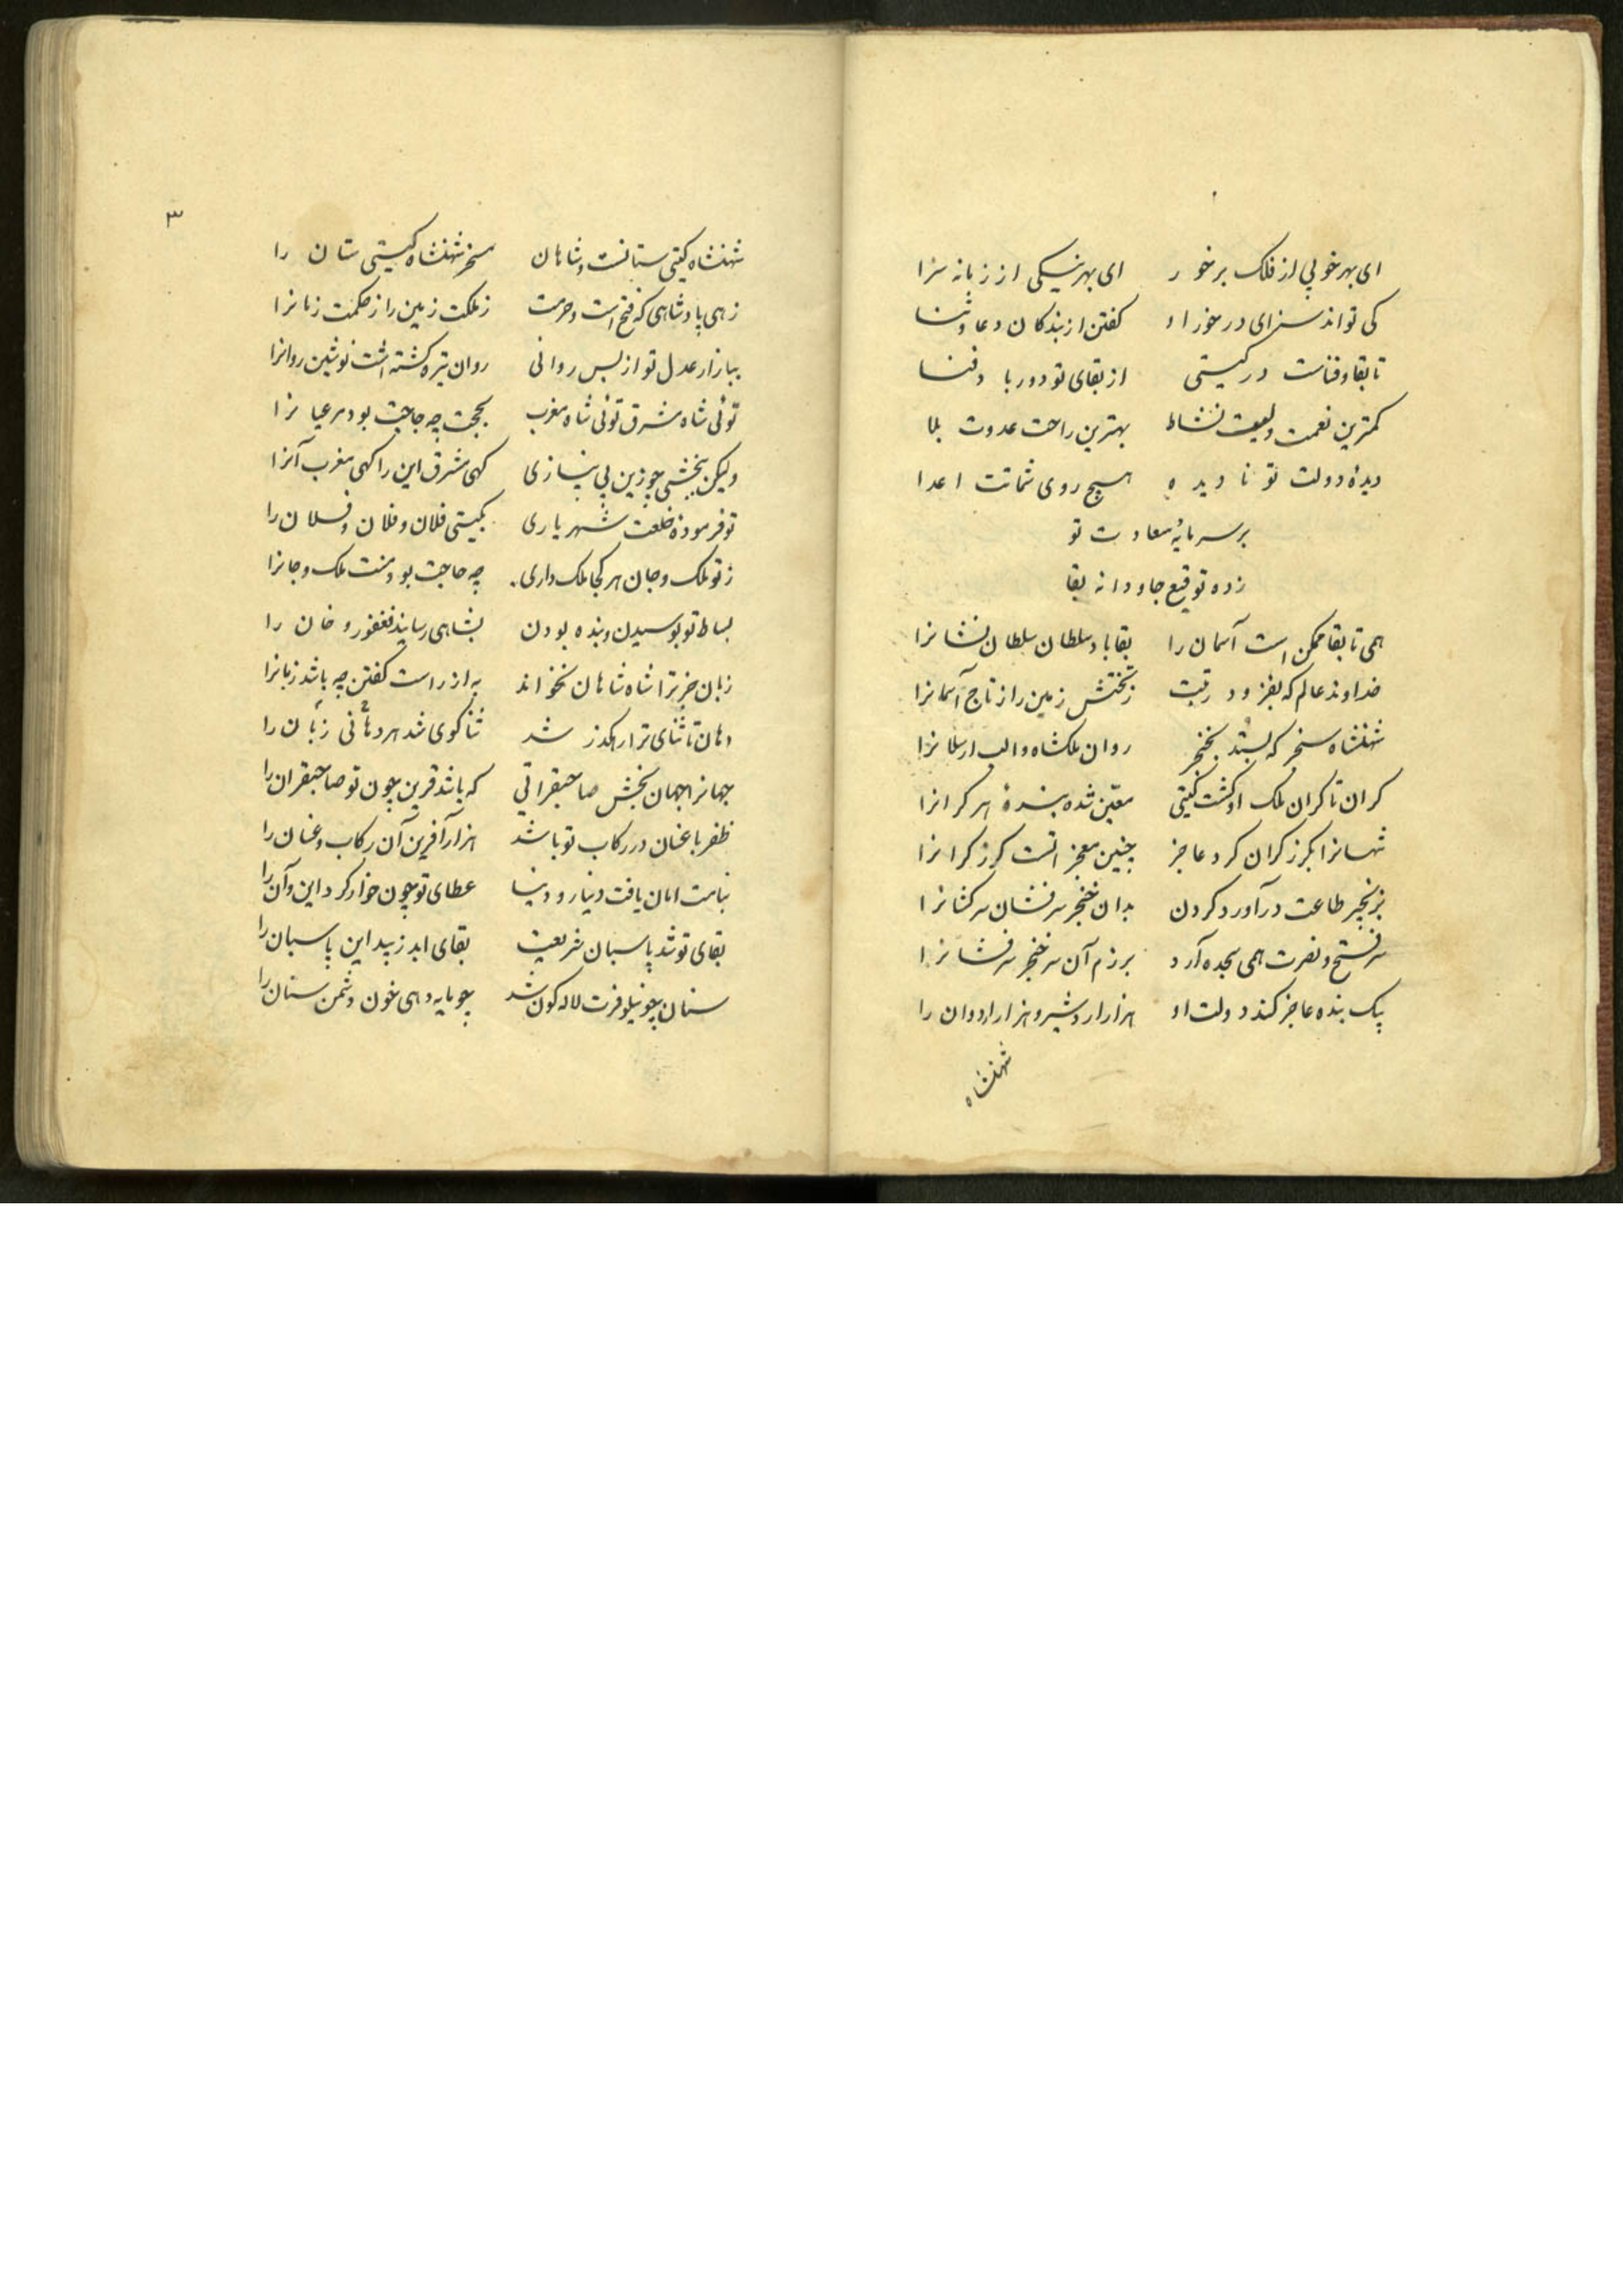 ای بهر خوبی از فلک برخور ای بهر نیکی از زمانه سزا
کی تواند سزای درخور او کفتن از بندکان دعا و ثنا
تا بقا و فناست در کیتی از بقای تو دور باد فنا
کمترین نعمت ولیت نشاط بهترین راحت عدوت بلا
دیدهٔ دولت تو نا دیده هیچ روی شماتت اعدا
بر سر مایهٔ سعادت تو
زده توقیع جاودانه بقا
همی تا بقا ممکن است آسمان را بقا باد سلطان سلطان نشانرا
خداوند عالم که بفزود رتبت ز تختش زمین را ز تاج آسمانرا
شهنشاه سنجر که بستد بخنجر روان ملکشاه و الب ارسلانرا
کران تا کران ملک او کشت کیتی معین شده بندهٔ هر کرانرا
شهانرا بکرز کران کرد عاجز چنین معجز است کرز کرانرا
بزنجیر طاعت درآورد کردن بدان خنجر سرفشان سرکشانرا
سر فتح و نصرت همی سجده آرد برزم آن سر خنجر سرفشانرا
یک بنده عاجز کند دولت او هزار اردشیر و هزار اردوان را
شهنشاه
۳
شهنشاه کیتی ستانست و شاهان مسخر شهنشاه کیتی ستان را
زهی پادشاهی که فتح است و حرمت ز ملکت زمین را ز حکمت زمانرا
ببازار عدل تو از بس روانی روان تیره کشته است نوشین روانرا
توئی شاه مشرق توئی شاه مغرب بحجت چه حاجت بود مر عیانرا
ولیکن ببخشی چو زین بی نیازی کهی مشرق این را کهی مغرب آنرا
تو فرمودهٔ خلعت شهریاری بکیتی فلان و فلان و فلان را
ز تو ملک و جان هر کجا ملک داری چه حاجت بود منت ملک و جانرا
بساط تو بوسیدن و بنده بودن بشاهی رسانید فغفور و خان را
زبان جز ترا شاه شاهان نخواند به از راست کفتن چه باشد زبانرا
دهان تا ثنای ترا رهکذر شد ثنا کوی شد هر دهانی زبان را
جهانرا جهان بخش صاحبقرانی که باشد قرین چون تو صاحبقران را
ظفر با عنان در رکاب تو باشد هزار آفرین آن رکاب و عنان را
بنامت امان یافت دینار و دنیا عطای تو چون خوار کرد این و آن را
بقای تو شد پاسبان شریعت بقای ابد زیبد این پاسبان را
سنان چو نیلوفرت لاله کون شد چو مایه دهی خون دشمن سنان را